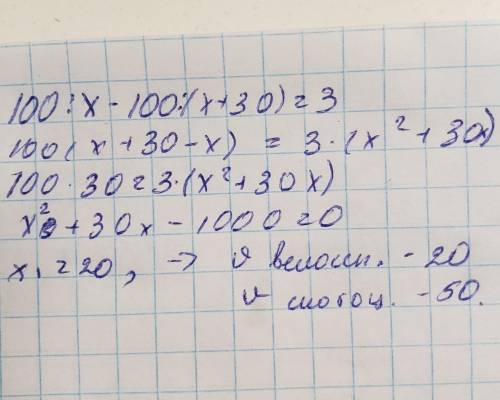 100:x - 100:(x+30) = 3
100(x+30-x) = 3·(x²+30x)
100·30 = 3·(x²+30x)
x²+30x - 1000 = 0
x₁ = 20, → v велосип. - 20
v мотоц. - 50.